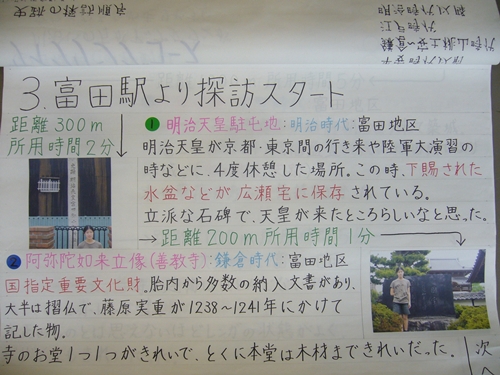 3.富田駅より探訪スタート
距離300m
所用時間2分
❶明治天皇駐屯地:明治時代:富田地区
明治天皇が京都・東京間の行き来や陸軍大演習の
時などに、4度休憩した場所。この時、下賜された
氷盆などが広瀬宅に保存されている。
立派な石碑で、天皇が来たところらしいなと思った。
→距離200m所用時間1分
❷阿弥陀如来立像(善教寺):鎌倉時代:富田地区
国指定重要文化財。胎内から多数の納入文書があり、
大半は摺仏で、藤原実重が1238~1241年にかけて
記した物。
寺のお堂1つ1つがきれいで、とくに本堂は木材まできれいだった。
次